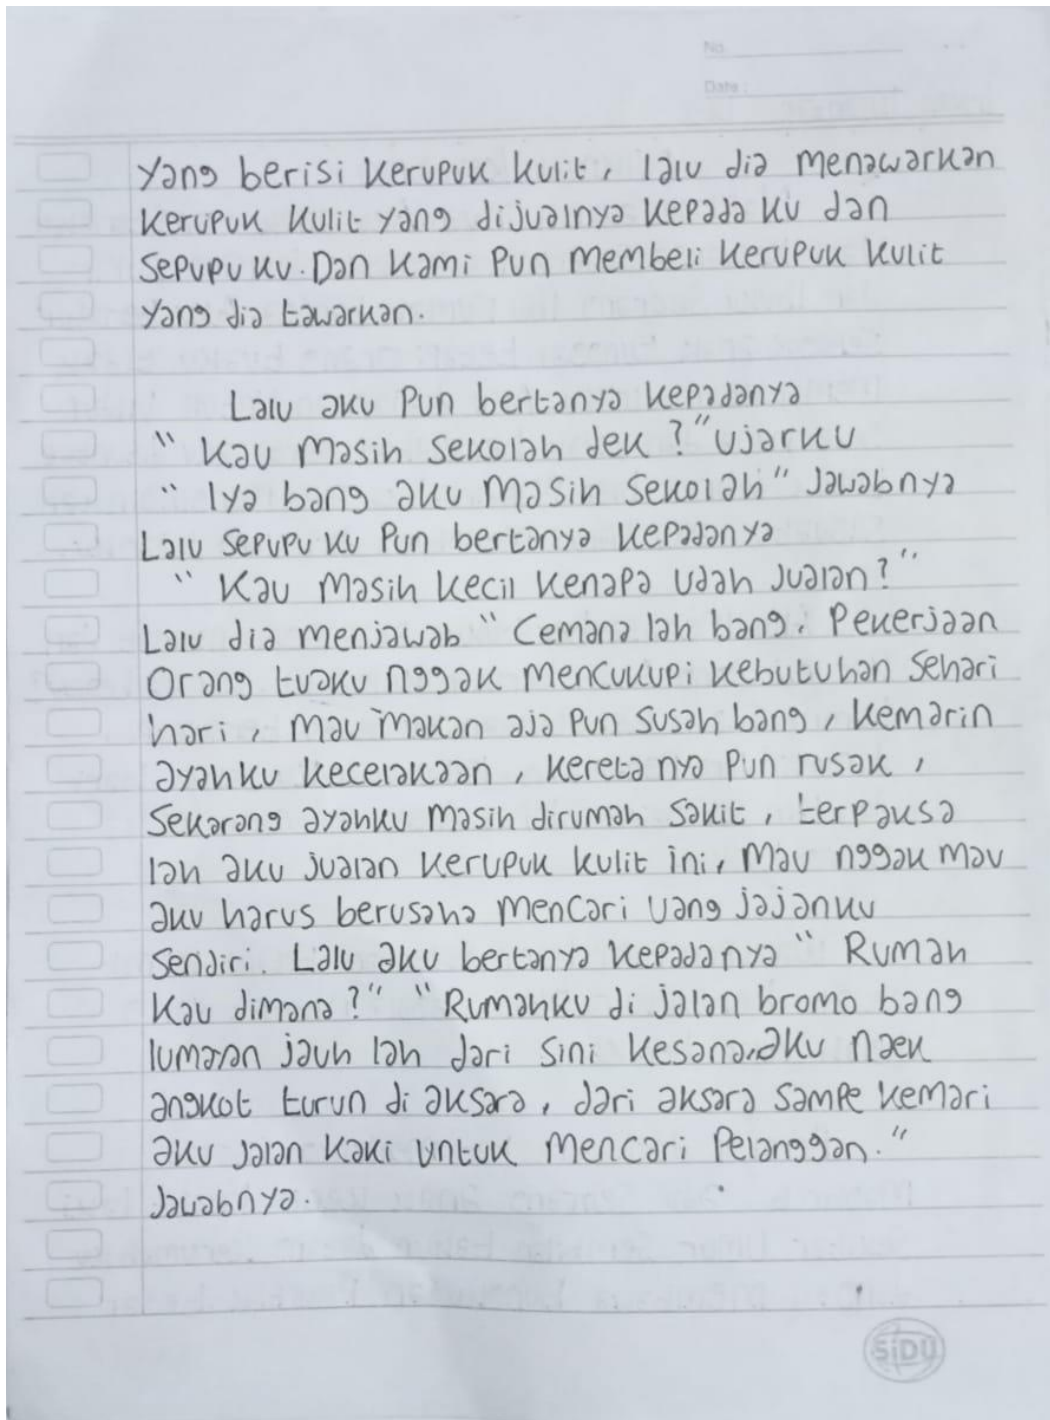 No.
Date :
Yang berisi kerupuk kulit, lalu dia menawarkan
kerupuk kulit yang dijualnya kepada ku dan
sepupu ku. Dan kami pun membeli kerupuk kulit
yang dia tawarkan.
Lalu aku pun bertanya kepadanya
" Kau masih sekolah dek ? " ujarku
" Iya bang aku masih sekolah " Jawabnya
Lalu sepupu ku pun bertanya kepadanya
" Kau masih kecil kenapa udah jualan ? "
Lalu dia menjawab " Cemana lah bang, Pekerjaan
Orang tuaku nggak mencukupi kebutuhan sehari
hari, mau makan aja pun susah bang, kemarin
ayahku kecelakaan, kereta nya pun rusak,
Sekarang ayahku masih dirumah sakit, terpaksa
lah aku jualan kerupuk kulit ini, mau nggak mau
aku harus berusaha mencari uang jajanku
sendiri. Lalu aku bertanya kepadanya " Rumah
kau dimana ? " " Rumahku di jalan bromo bang
lumayan jauh lah dari sini kesana, aku naek
angkot turun di aksara, dari aksara sampe kemari
aku jalan kaki untuk mencari pelanggan. "
Jawabnya.
SiDU